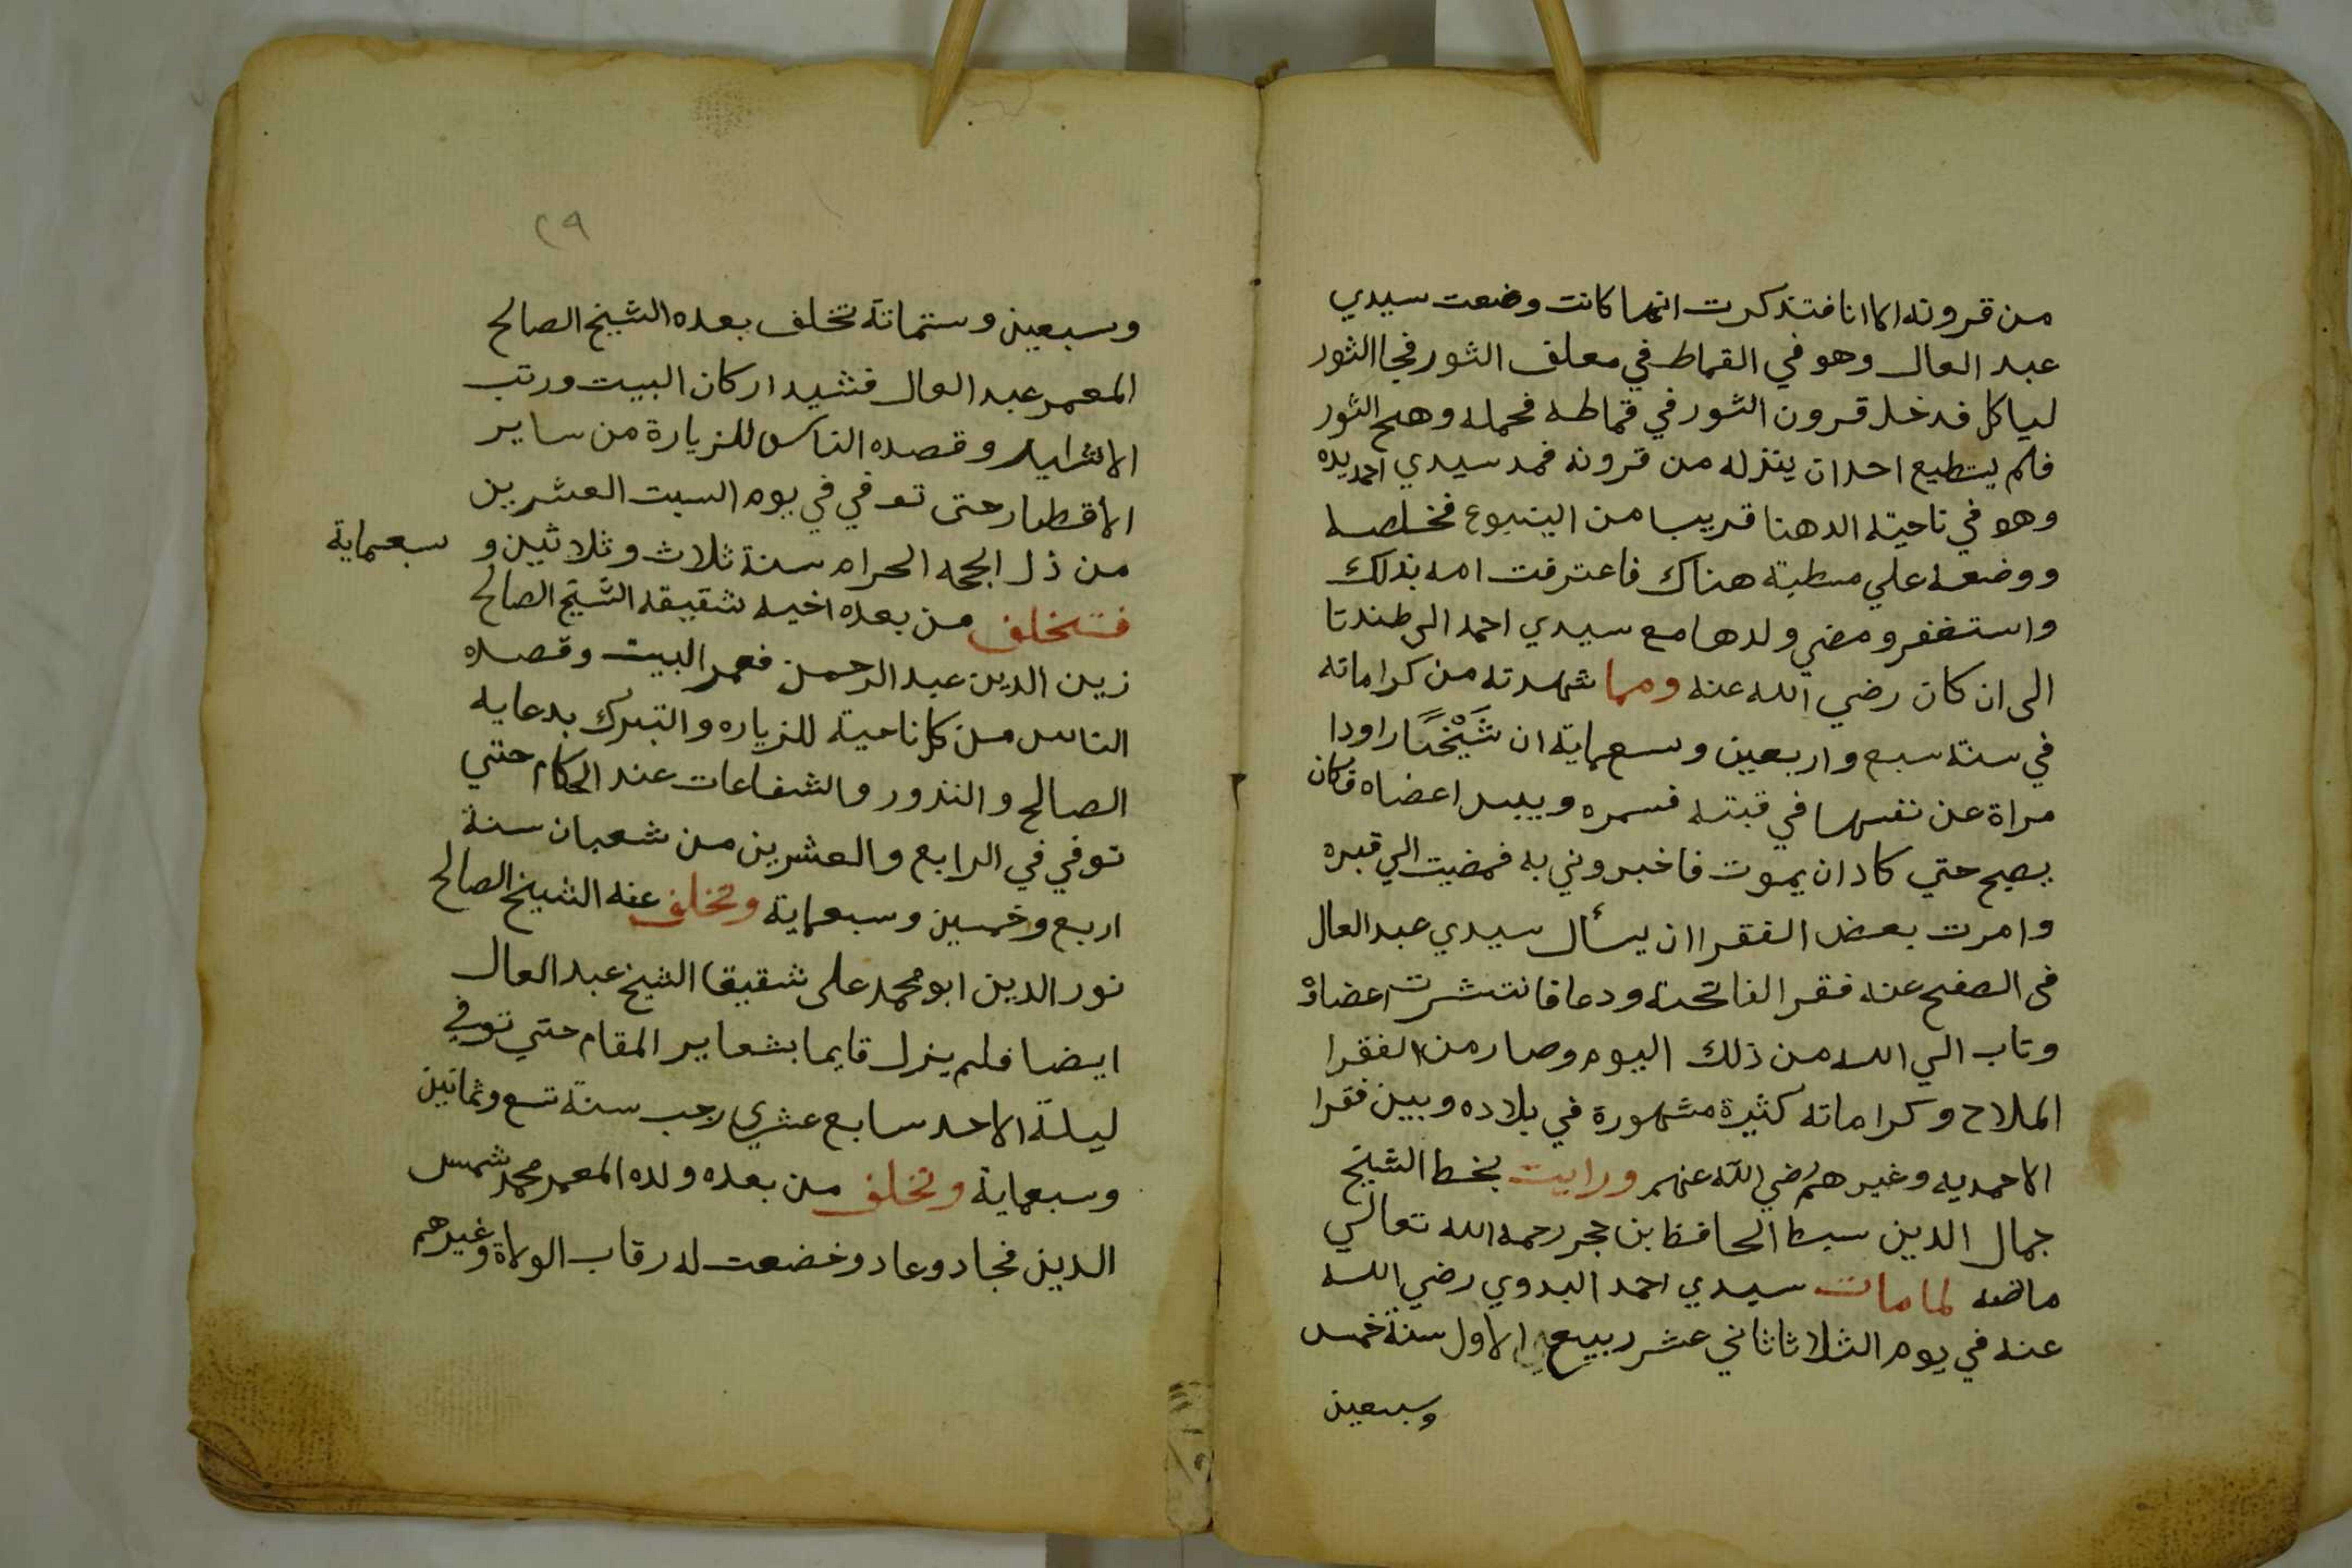 من قرونه الا انا فتذكرت انها كانت وضعت سيدي
عبد العال وهو في القماط في معلف الثور فجا الثور
لياكل فدخل قرون الثور في قماطه فحمله وهج الثور
فلم يستطيع احد ان ينزله من قرونه فمد سيدي احمد يده
وهو في ناحية الدهنا قريب من الينبوع فخلصه
ووضعه علي مسطبة هناك فاعترفت امه بذلك
واستغفر ومضي ولدها مع سيدي احمد الى طندتا
الى ان كان رضي الله عنه ومما شهدته من كراماته
في سنة سبع واربعين وسعماية ان شَيْخًا راودا
مراة عن نفسها في قبته فسمره ويبس اعضاه فكان
يصيح حتي كاد ان يموت فاخبروني به فمضيت الي قبره
وامرت بعض الفقرا ان يسأل سيدي عبد العال
فى الصفح عنه فقرا الفاتحة ودعا فانتشرت اعضاؤه
وتاب الي الله من ذلك اليوم وصار من الفقرا
الملاح وكراماته كثيرة مشهورة في بلاده وبين فقرا
الاحمديه وغيرهم رضي الله عنهم ورايت بخط الشيخ
جمال الدين سبط الحافظ بن حجر رحمه الله تعالي
ماصه لما مات سيدي احمد البدوي رضي الله
عنه في يوم الثلاثا ثاني عشر ربيع الاول سنة خمس
وسبعين
٢٩
وسبعين وستماتة تخلف بعده الشيخ الصالح
المعمر عبد العال فشيد اركان البيت ورتب
الاشراير وقصده الناس للزيارة من ساير
الاقطار حتى توفي في يوم السبت العشرين
من ذل الحجه الحرام سنة ثلاث وثلاثين و سبعماية
فتخلف من بعده اخيه شقيقه الشيخ الصالح
زين الدين عبد الرحمن فعمر البيت وقصده
الناس من كل ناحية للزياره والتبرك بدعايه
الصالح والنذور والشفاعات عند الحكام حتي
توفي في الرابع والعشرين من شعبان سنة
اربع وخمسين وسبعماية وتخلف عنه الشيخ الصالح
نور الدين ابو محمد على شقيقا الشيخ عبد العال
ايضا فلم يزل قايما بشعاير المقام حتي توفي
ليلة الاحد سابع عشري رجب سنة تسع وثمانين
وسبعماية وتخلف من بعده ولده المعمر محمد شمس
الدين فجاد وعاد وخضعت له رقاب الولاة وغيرهم